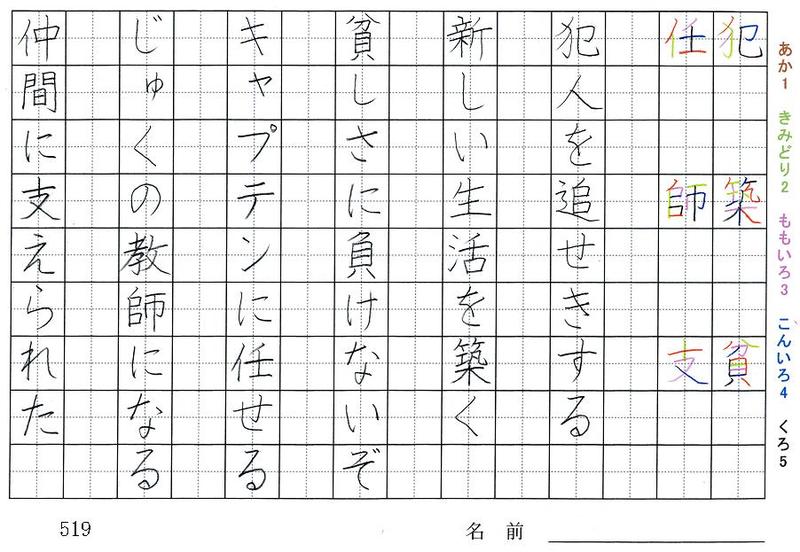 あか1 きみどり2 ももいろ3 こんいろ4 くろ5
犯 築 貧
任 師 支
犯人を追せきする
新しい生活を築く
貧しさに負けないぞ
キャプテンに任せる
じゅくの教師になる
仲間に支えられた
519
名前